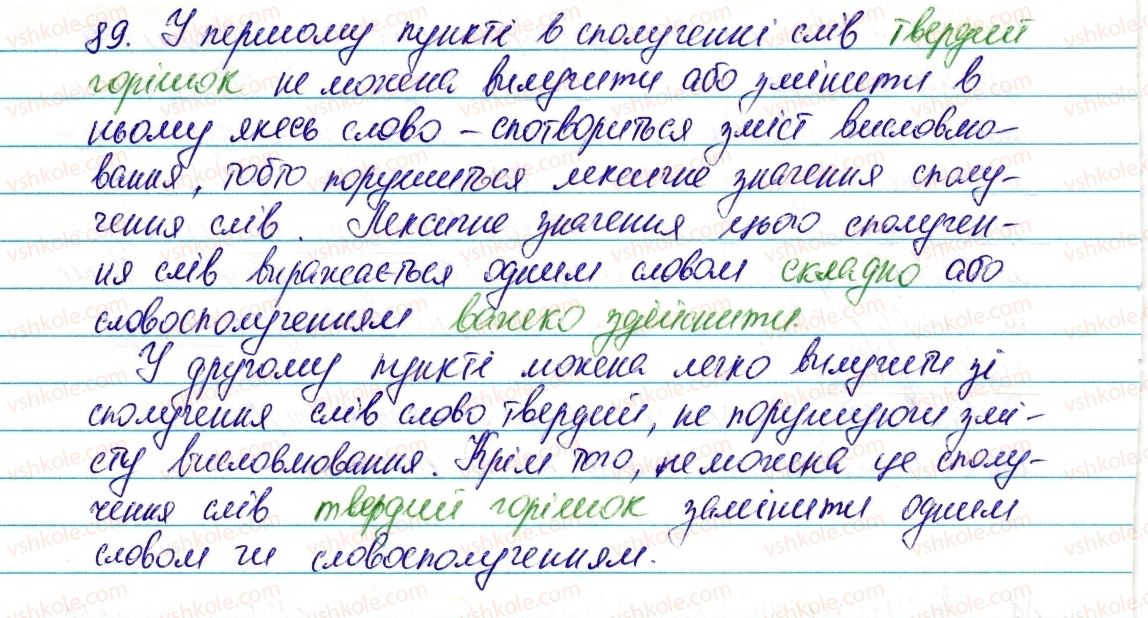 89. У першому пункті в сполученні слів твердий
горішок не можна вилучити або змінити в
ньому якесь слово – спотвориться зміст висловлю-
вання, тобто порушиться лексичне значення сполу-
чення слів. Лексичне значення цього сполучен-
ня слів виражається одним словом складно або
словосполученням важко здійснити.
У другому пункті можна легко вилучити зі
сполучення слів слово твердий, не порушуючи змі-
сту висловлювання. Крім того, не можна це сполу-
чення слів твердий горішок замінити одним
словом чи словосполученням.